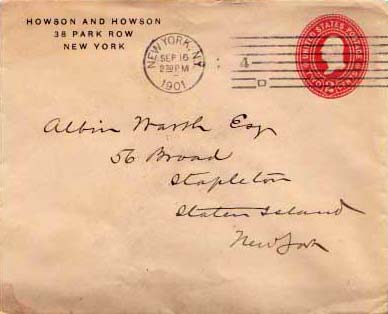 HOWSON AND HOWSON
38 PARK ROW
NEW YORK
NEW YORK, N.Y.
SEP 16
2 PM
1901
4
D
UNITED STATES POSTAGE
TWO CENTS
2
Albin Warth Esq
56 Broad
Stapleton
Staten Island
New York